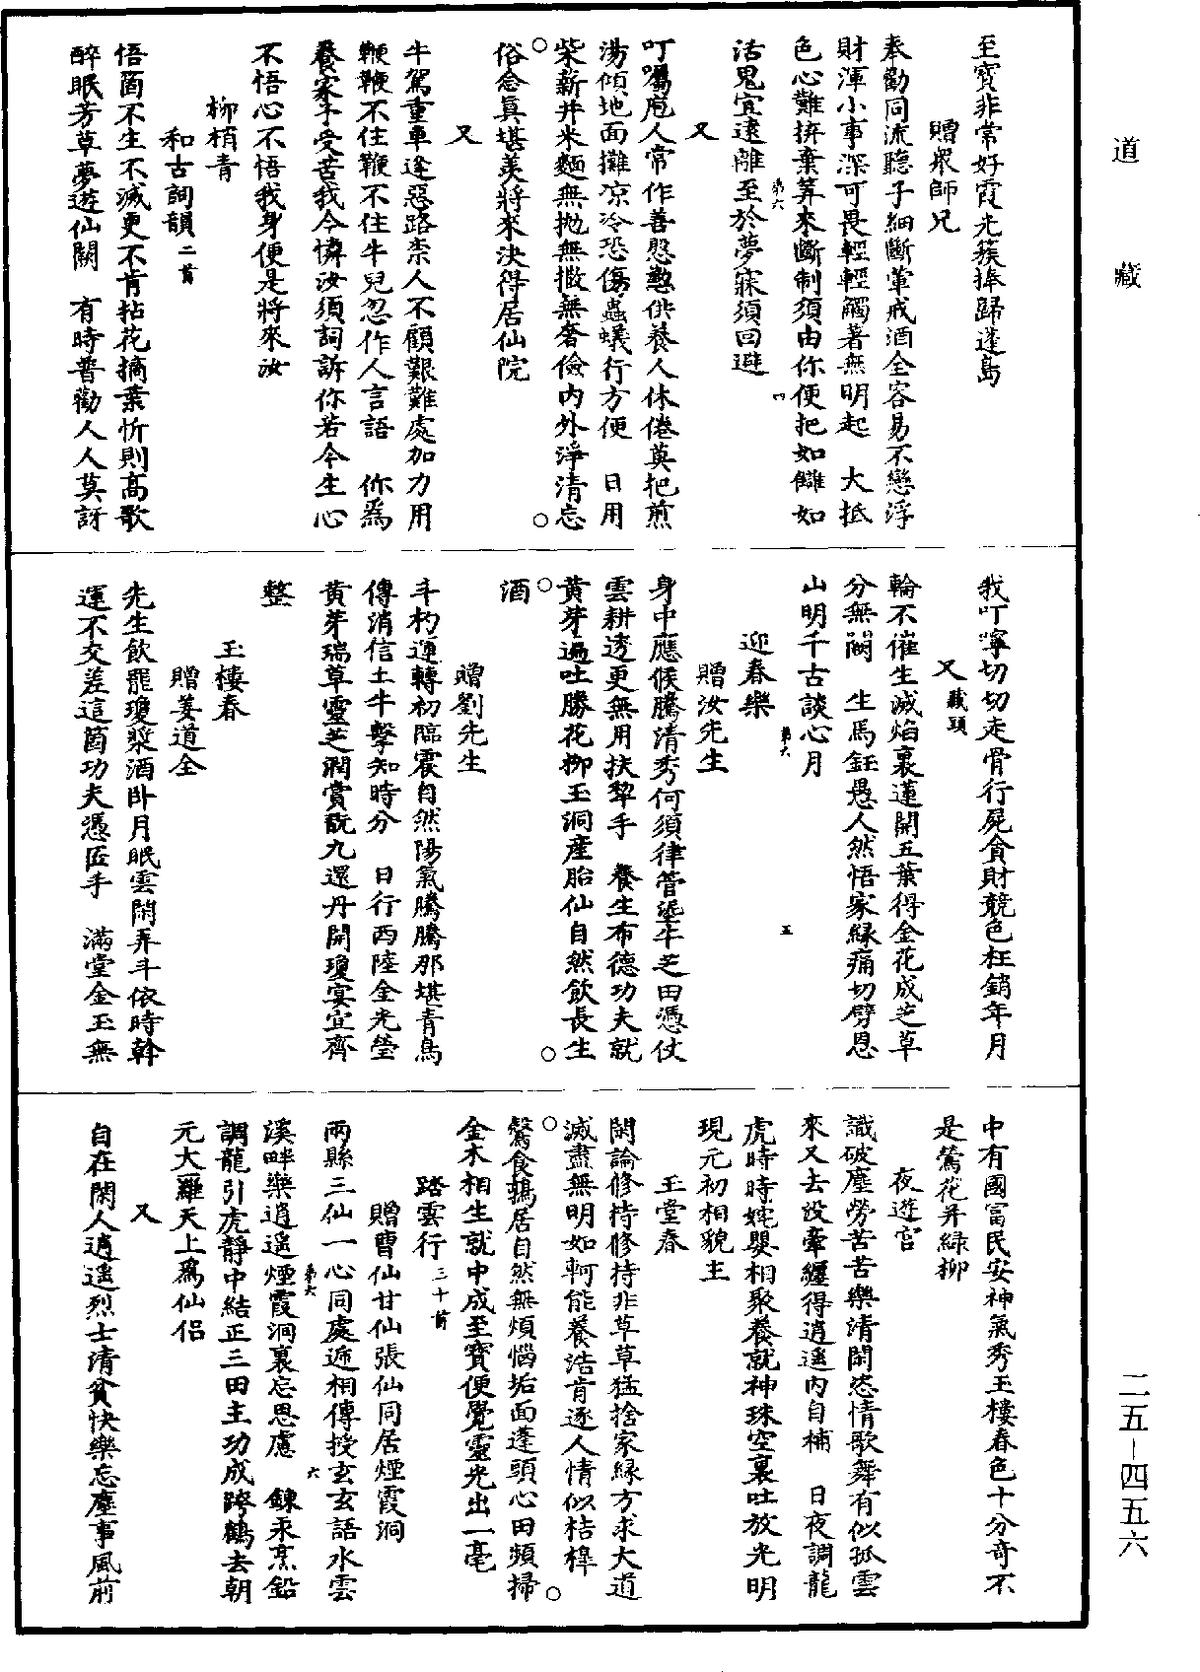 道藏
至寶非常好霞光簇捧歸蓬島
贈衆師兄
奉勸同流聽子細斷葷戒酒全容易不戀浮
財渾小事深可畏輕輕觸著無明起　大抵
色心難拚棄筭來斷制須由你便把如讎如
第六　四
活鬼宜遠離至於夢寐須回避
又
叮囑庖人常作善慇懃供養人休倦莫把煎
湯傾地面攤凉冷恐傷蟲蟻行方便　日用
柴薪并米麵無拋無撒無奢儉內外淨清忘
俗念真堪羨將來決得居仙院
又
牛駕重車逢惡路柰人不顧艱難處加力用
鞭鞭不住鞭不住牛兒忽作人言語　你爲
養家予受苦我今憐汝須詞訴你若今生心
不悟心不悟我身便是將來汝
柳梢青
和古詞韻二首
悟箇不生不滅更不肯拈花摘葉忻則高歌
醉眠芳草夢遊仙闕　有時普勸人人莫訝
我叮嚀切切走骨行屍貪財競色枉銷年月
又藏頭
輪不催生滅焰裏蓮開五葉得金花成芝草
分無闕　生馬鈺愚人然悟家緣痛切劈恩
山明千古談心月
第六　五
迎春樂
贈汝先生
身中應候騰清秀何須律管塗牛芝田憑仗
雲耕透更無用扶犂手　養生布德功夫就
黃芽遍吐勝花柳玉洞產胎仙自然飲長生
酒
贈劉先生
斗杓運轉初臨震自然陽氣騰騰那堪青鳥
傳消信土牛擊知時分　日行西陸金光瑩
黃芽瑞草靈芝潤賞翫九還丹開瓊宴宜齊
整
玉樓春
贈姜道全
先生飲罷瓊漿酒卧月眠雲閑弄斗依時斡
運不交差這箇功夫憑匠手　滿堂金玉無
中有國富民安神氣秀玉樓春色十分奇不
是鶯花并綠柳
夜遊宮
識破塵勞苦苦樂清閑恣情歌舞有似孤雲
來又去没牽纏得逍遥內自補　日夜調龍
虎時時姹嬰相聚養就神珠空裏吐放光明
現元初相貌主
玉堂春
閑論修持修持非草草猛捨家緣方求大道
滅盡無明如軻能養浩肯逐人情似桔槹
驚食鶉居自然無煩惱垢面蓬頭心田頻掃
金木相生就中成至寶便覺靈光出一毫
踏雲行三十首
贈曹仙甘仙張仙同居煙霞洞
兩縣三仙一心同處遞相傳授玄玄語水雲
第六　六
溪畔樂逍遥煙霞洞裏忘思慮　鍊汞烹鉛
調龍引虎靜中結正三田主功成跨鶴去朝
元大羅天上爲仙侣
又
自在閑人逍遥烈士清貧快樂忘塵事風前
二五-四五六